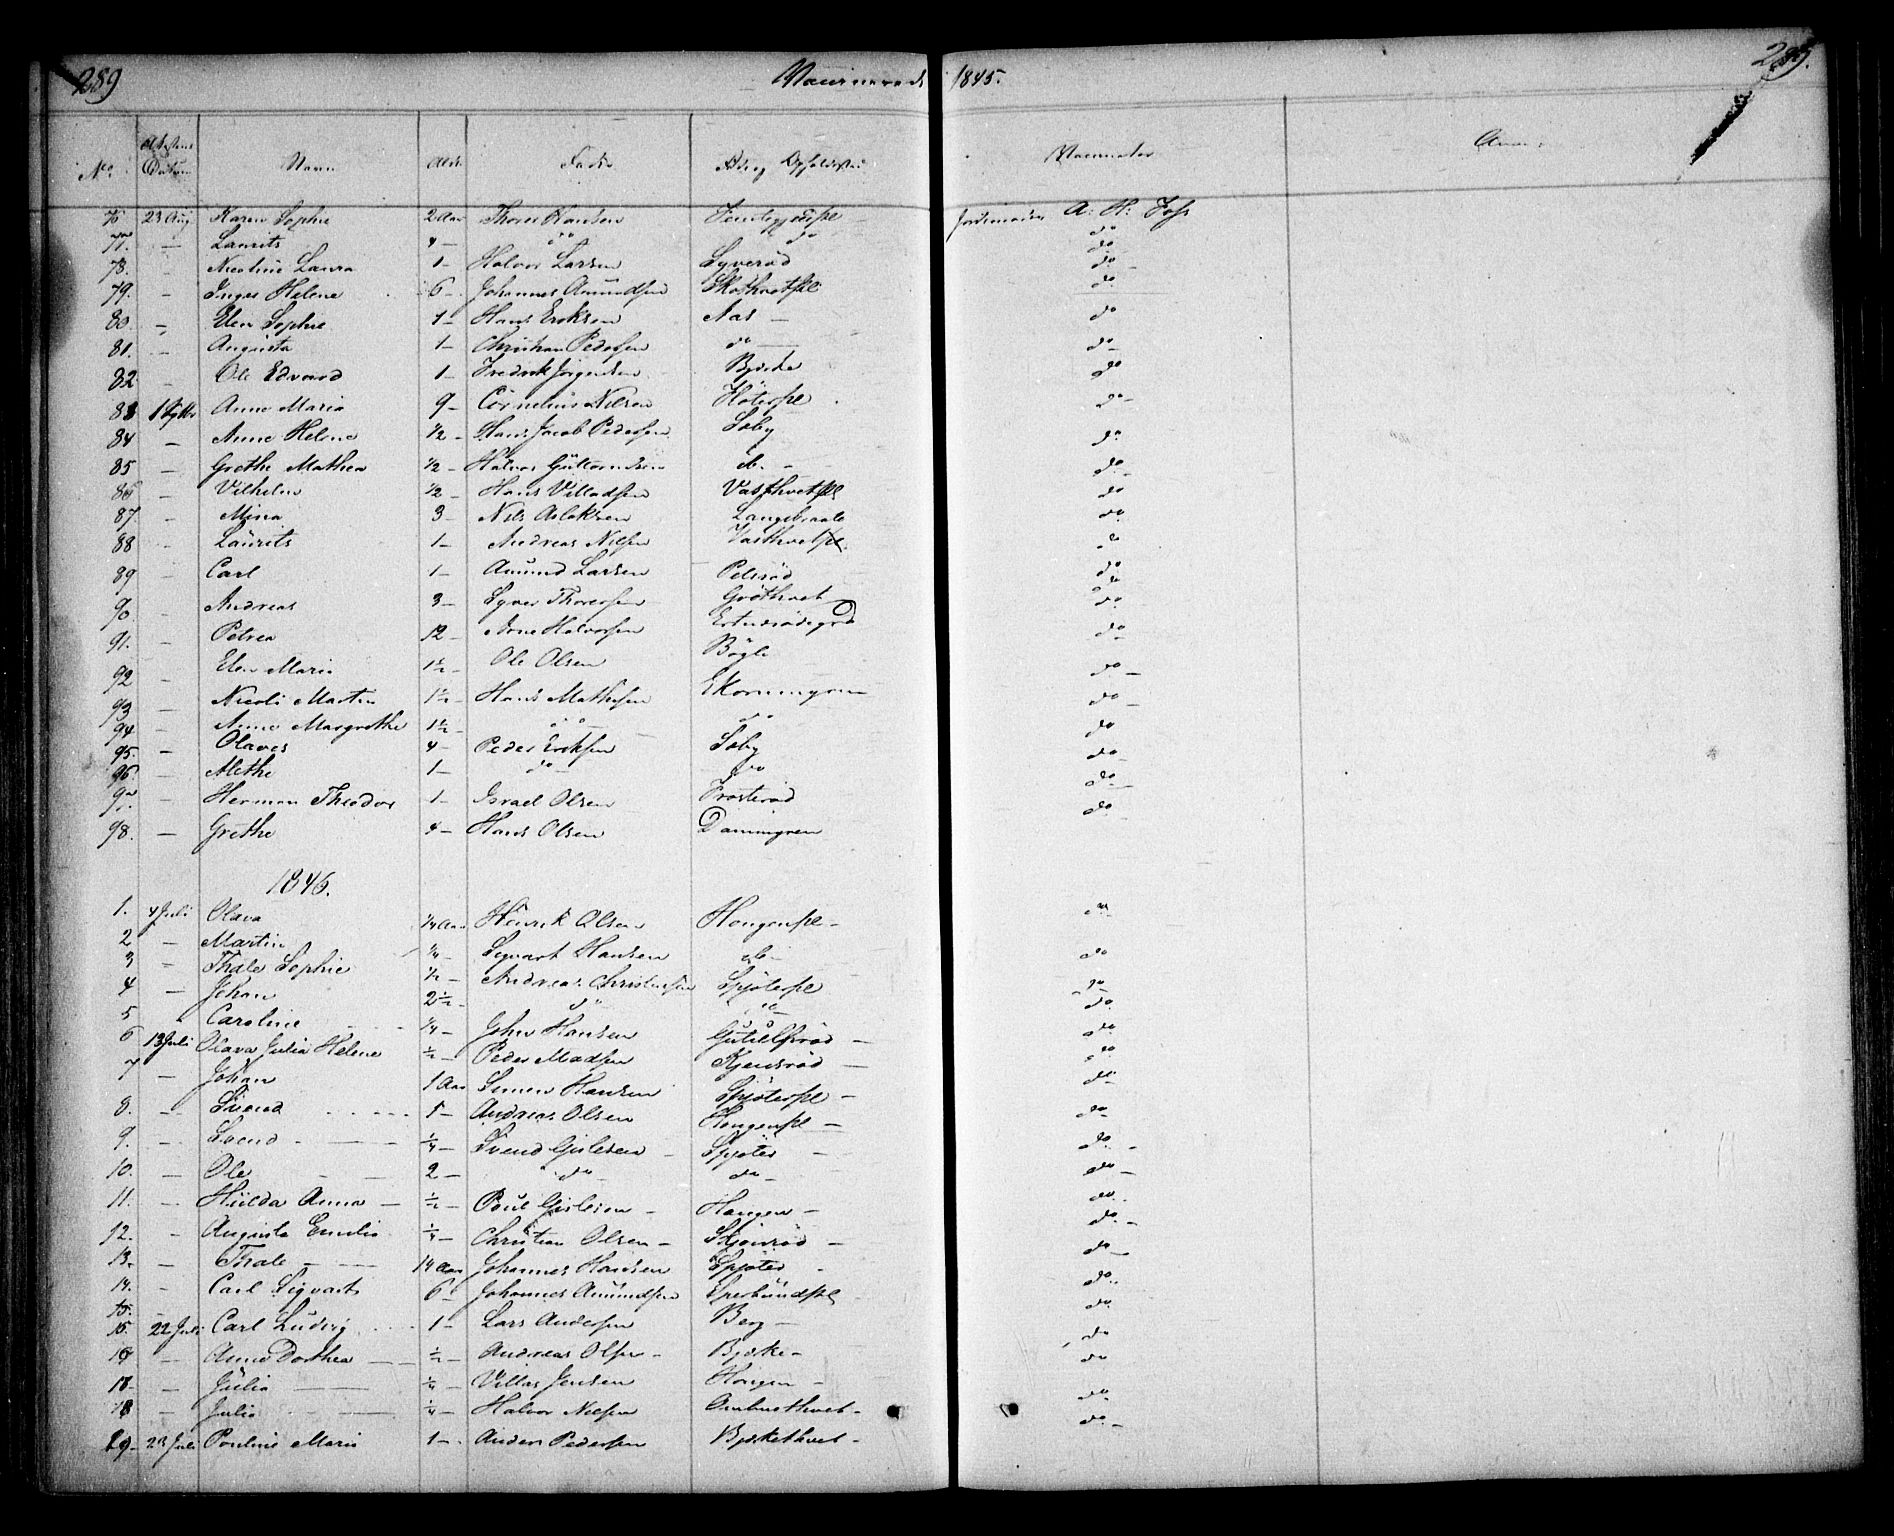 289 1845. 289.
No. Datum Navn Ald. Fader Fader og Opholdssted Vaccinator Anm.
76 23 Aug Karen Sophie 2 Aar Thorer Hansen Jordemoder A: H: Foss
77. — Laurits 4 — do do do
78. — Nicoline Laura 1 — Halvor Larsen Syverød do —
79. — Inger Helene 6 — Johannes Amundsen Skothvetpl do
80. — Elen Sophie 1 — Hans Eriksen Aas — do
81. — Augusta 1 — Christian Pedersen do — do
82. — Ole Edvard 1 — Fredrik Jørgensen Bjerke do
83 1 Septbr Anne Maria 9 — Cornelius Nilsen Høterpl do —
84 — Anne Helene 1/2 — Hans Jacob Pedersen Søby do
85 — Grethe Mathea 1/2 — Halvor Guttormsen do — do —
86 — Vilhelm 1/2 — Hans Villadsen Vasthvetpl do
87 — Mina 3 — Nils Aslaksen Langebraate do
88 — Laurits 1 — Andreas Nilsen Vasthvetpl. do
89 — Carl 1 — Amund Larsen Pelsrød do
90 — Andreas 3 — Syver Thoresen Grøthvet do
91. — Petrea 12 — Arne Halvorsen do
92 — Elen Maria 1 1/2 — Ole Olsen Bøgli do —
93 — Nicoli Martin 1 1/2 — Hans Mathisen Ekorningren do —
94 — Anne Margrethe 1 1/2 — do do do
95. — Olaves 4 — Peder Eriksen Søby do —
96. — Alethe 1 — do — do do —
97. — Herman Theodor 1 — Israel Olsen Frosterød do —
98. — Grethe 4 — Hans Olsen Damingren
1846.
1. 4 Juli Olava 1/4 Aar Henrik Olsen Hougenpl — do
2 — Martin 1/4 — Sigvart Hansen do — do
3 — Thale Sophie 1/2 — Andreas Christensen Spjøterpl do
4 — Johan 2 1/2 — do do do
5 Caroline 1/4 — John Hansen Gutulfsrød — do
6 13 Juli Olava Julia Helene 1/2 — Peder Madsen Kjensrød — do
7 — Johan 1 Aar Simen Hansen Spjøterpl — do
8. — Svend 5 — Andreas Olsen Hougenpl — do
9. — Svend 1/4 — Svend Gislesen — Spjøter — do —
10. — Ole 2 — do — do — do —
11. — Hulda Anna — 1/2 — Poul Gislesen — Hougen — do
12. — Augusta Emilia 1/4 — Christian Olsen — Skjønrød — do —
13. — Thale — 14 Aar Johannes Hansen Spjøter — do —
14. — Carl Sigvart 6 — Johannes Amundsen do
15. 22 Juli Carl Ludvig 1 — Lars Andersen Berg — do
16 — Anne Dorthea — 1/2 — Andreas Olsen — Bjerke — do
17 — Julia — 1/4 — Villas Jensen Hougen — do
18 — Julia 1/4 — Halvor Nilsen Ombusthvet — do
19 — 23 Juli Pouline Maria 1 — Anders Pedersen Bjerkethvet — do —